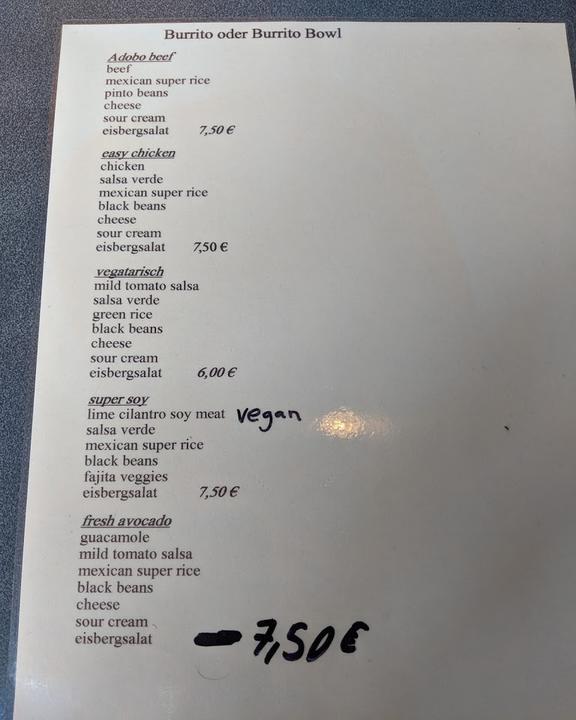 Burrito oder Burrito Bowl
Adobo beef
beef
mexican super rice
pinto beans
cheese
sour cream
eisbergsalat 7,50 €
easy chicken
chicken
salsa verde
mexican super rice
black beans
cheese
sour cream
eisbergsalat 7,50 €
vegatarisch
mild tomato salsa
salsa verde
green rice
black beans
cheese
sour cream
eisbergsalat 6,00 €
super soy
lime cilantro soy meat vegan
salsa verde
mexican super rice
black beans
fajita veggies
eisbergsalat 7,50 €
fresh avocado
guacamole
mild tomato salsa
mexican super rice
black beans
cheese
sour cream
eisbergsalat 7,50 €